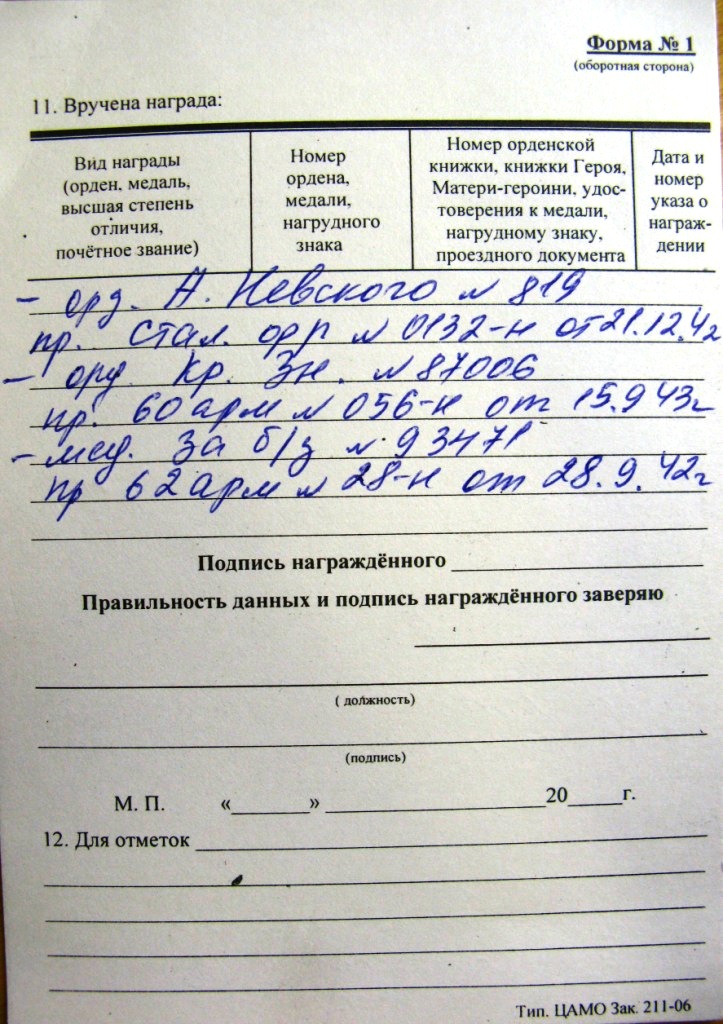 Форма № 1
(оборотная сторона)
11. Вручена награда:
Вид награды
(орден, медаль,
высшая степень
отличия,
почётное звание)
Номер
ордена,
медали,
нагрудного
знака
Номер орденской
книжки, книжки Героя,
Матери-героини, удос-
товерения к медали,
нагрудному знаку,
проездного документа
Дата и
номер
указа о
награж-
дении
- орд. А. Невского № 819
пр. Стал. фр № 0132-н от 21.12.42
- орд Кр. Зн. № 87006
пр. 60 арм № 056-н от 15.9 43г
- мед. За б/з № 93471
пр 62 арм № 28-н от 28.9.42г
Подпись награждённого
Правильность данных и подпись награждённого заверяю
( должность)
(подпись)
М. П. «_______» ____________________20_____г.
12. Для отметок
Тип. ЦАМО Зак. 211-06